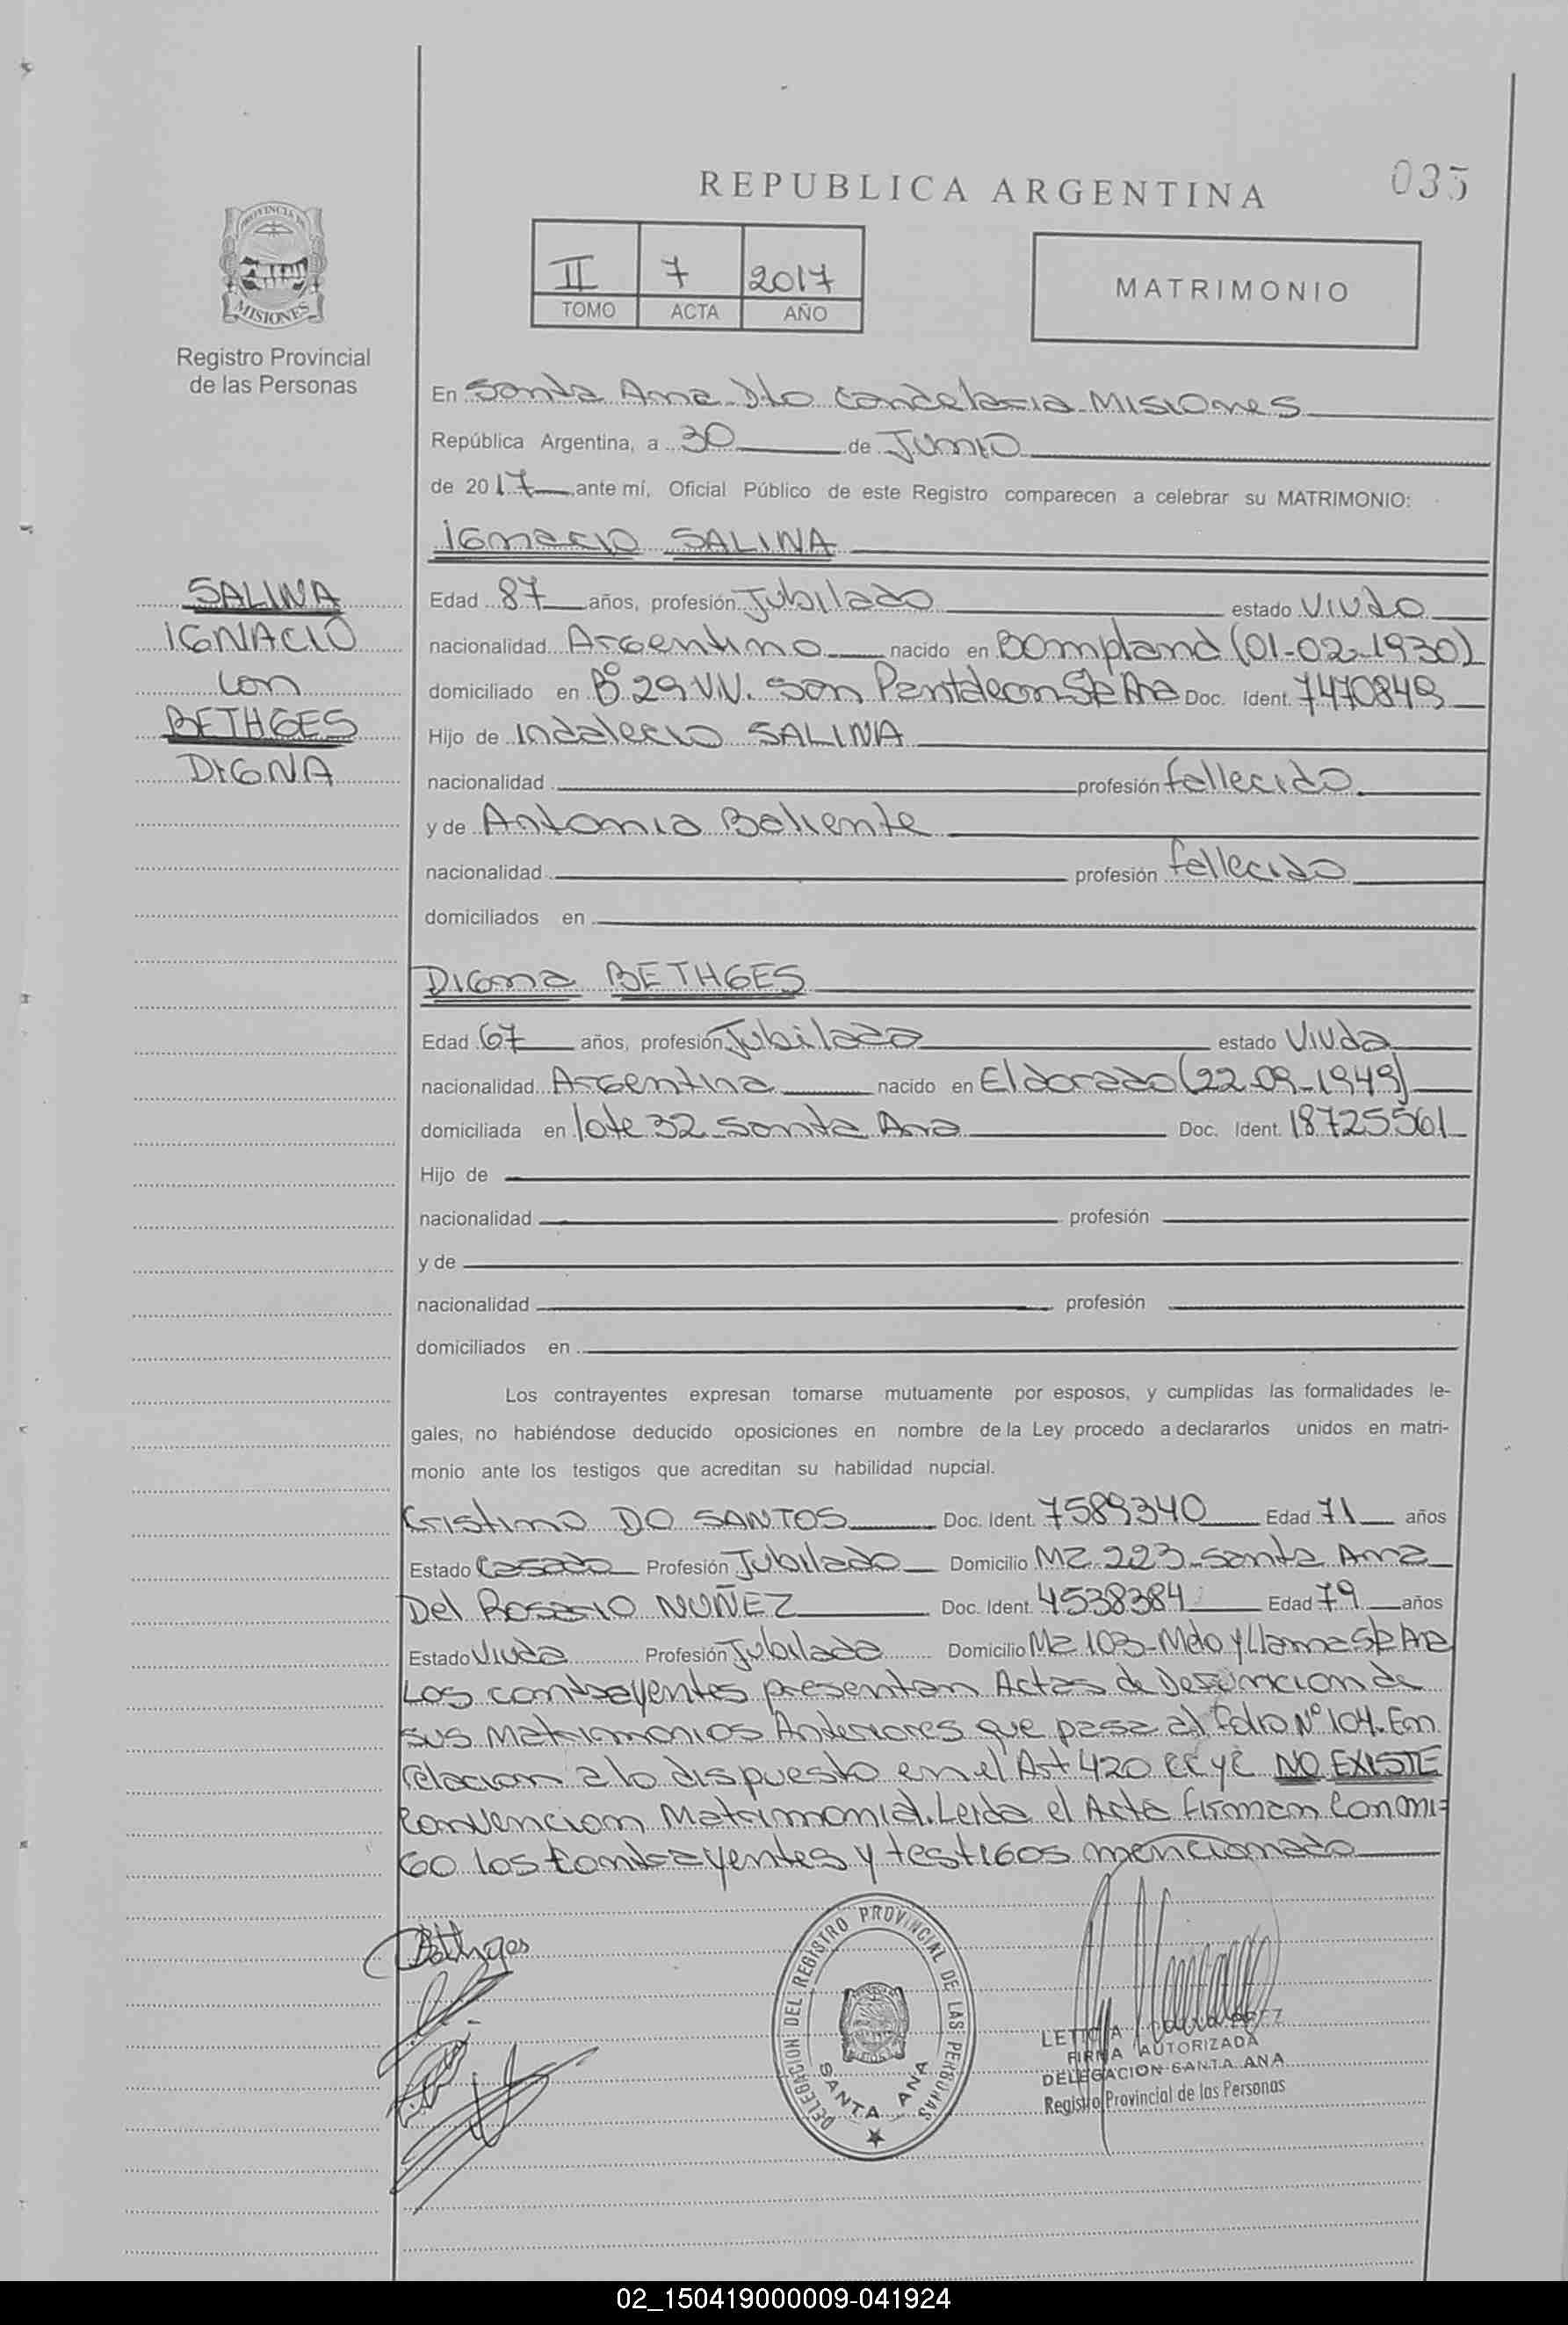 035
REPUBLICA ARGENTINA
PROVINCIA DE
MISIONES
Registro Provincial
de las Personas
II 7 2017
TOMO ACTA AÑO
MATRIMONIO
En Santa Ana Dto Candelaria Misiones
República Argentina, a 30 de Junio
de 2017 ante mí, Oficial Público de este Registro comparecen a celebrar su MATRIMONIO:
Ignacio SALINA
SALINA
IGNACIO
con
BETHGES
DIGNA
Edad 87 años, profesión Jubilado estado Viudo
nacionalidad Argentino nacido en Bompland (01-02-1930)
domiciliado en Bº 29 VIV. San Pantaleon Sta Ana Doc. Ident. 7470849
Hijo de Indalecio SALINA
nacionalidad profesión fallecido
y de Antonia Baliente
nacionalidad profesión fallecido
domiciliados en
Digna BETHGES
Edad 67 años, profesión Jubilada estado Viuda
nacionalidad Argentina nacido en Eldorado (22-09-1949)
domiciliada en lote 32 Santa Ana Doc. Ident. 18725561
Hijo de
nacionalidad profesión
y de
nacionalidad profesión
domiciliados en
Los contrayentes expresan tomarse mutuamente por esposos, y cumplidas las formalidades le-
gales, no habiéndose deducido oposiciones en nombre de la Ley procedo a declararlos unidos en matri-
monio ante los testigos que acreditan su habilidad nupcial.
Cristino DO SANTOS Doc. Ident. 7589340 Edad 71 años
Estado Casado Profesión Jubilado Domicilio MZ 223 Santa Ana
Del Rosario NUÑEZ Doc. Ident. 4538384 Edad 79 años
Estado Viuda Profesión Jubilada Domicilio Mz 103-Melo y Llama Sta Ana
Los contrayentes presentan Actas de Defuncion de
sus Matrimonios Anteriores que pasa al folio Nº 104. En
relacion a lo dispuesto en el Art 420 CC y C NO EXISTE
Convencion Matrimonial. Leida el Acta firman conmi=
go los contrayentes y testigos mencionado
Bethges
DELEGACION DEL REGISTRO PROVINCIAL DE LAS PERSONAS
SANTA ANA
LETICIA
FIRMA AUTORIZADA
DELEGACION SANTA ANA
Registro Provincial de las Personas
02_150419000009-041924